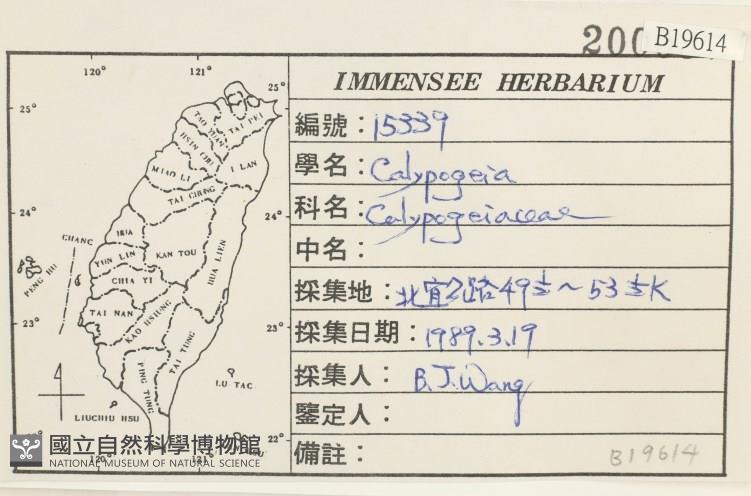 200
B19614
IMMENSEE HERBARIUM
編號：15339
學名：Calypogeia
科名：Calypogeiaceae
中名：
採集地：北宜公路49½～53½K
採集日期：1989.3.19
採集人：B.J.Wang
鑒定人：
備註：
B19614
120°
121°
25°
25°
TAO YUAN
TAI PEI
HSIN CHU
MIAO LI
I LAN
TAI CHUNG
24°
24°
CHANG
HUA
YUN LIN
NAN TOU
HUA LIEN
PENG HU
CHIA YI
TAI NAN
KAO HSIUNG
23°
23°
TAI TUNG
PING TUNG
LU TAO
LIUCHIU HSU
22°
120°
121°
國立自然科學博物館
NATIONAL MUSEUM OF NATURAL SCIENCE